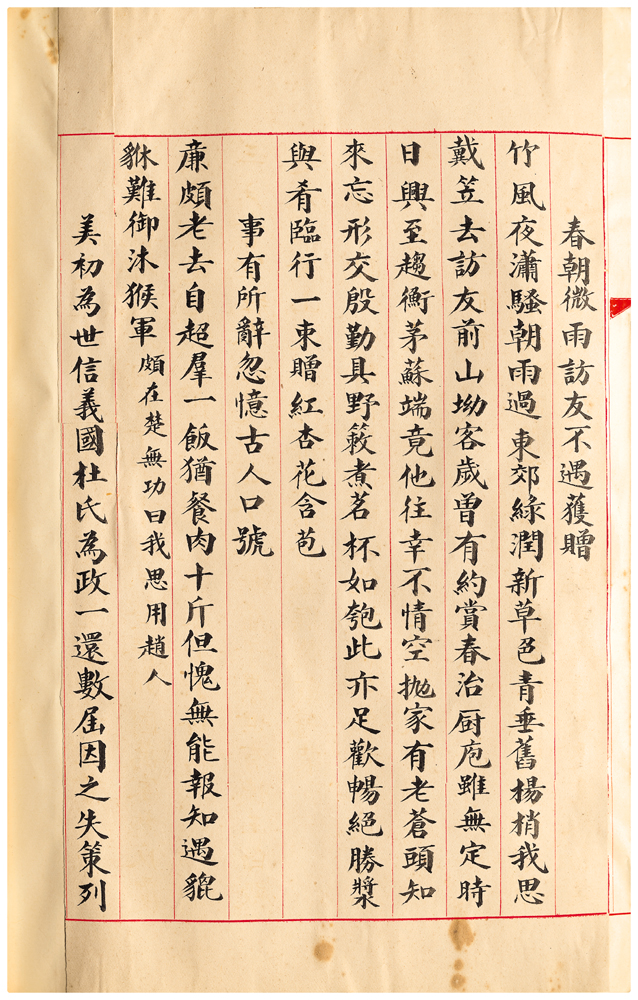 春朝微雨訪友不遇獲贈
竹風夜瀟騷朝雨過東郊綠潤新草色青垂舊楊梢我思
戴笠去訪友前山坳客歲曾有約賞春治厨庖雖無定時
日興至趨衡茅蘇端竟他往幸不情空抛家有老蒼頭知
來忘形交殷勤具野蔌煮茗杯如匏此亦足歡暢絕勝漿
與肴臨行一束贈紅杏花含苞
事有所辭忽憶古人口號
廉頗老去自超羣一飯猶餐肉十斤但愧無能報知遇貔
貅難御沐猴軍頗在楚無功曰我思用趙人
美初為世信義國杜氏為政一還數屆因之失策列